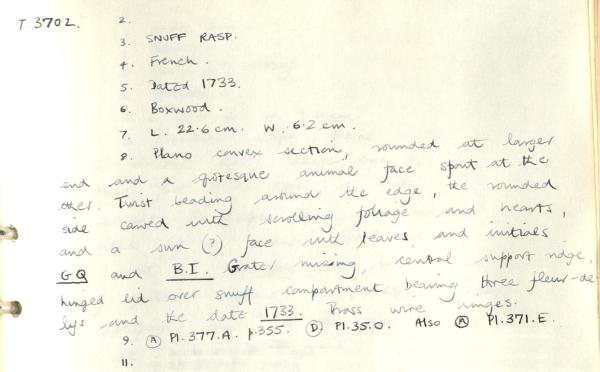 T 3702.
2.
3. SNUFF RASP.
4. French.
5. Dated 1733.
6. Boxwood.
7. L. 22.6 cm. W. 6.2 cm.
8. Plano convex section, rounded at larger
end and a grotesque animal face spout at the
other. Twist beading around the edge, the rounded
side carved with scrolling foliage and hearts,
and a sun (?) face with leaves and initials
GQ and B.I. Grater missing, central support ridge,
hinged lid over snuff compartment bearing three fleur-de-
lys and the date 1733. Brass wire hinges.
9. (A) Pl. 377.A. p.355. (D) Pl.35.O. Also (A) Pl.371.E.
11.